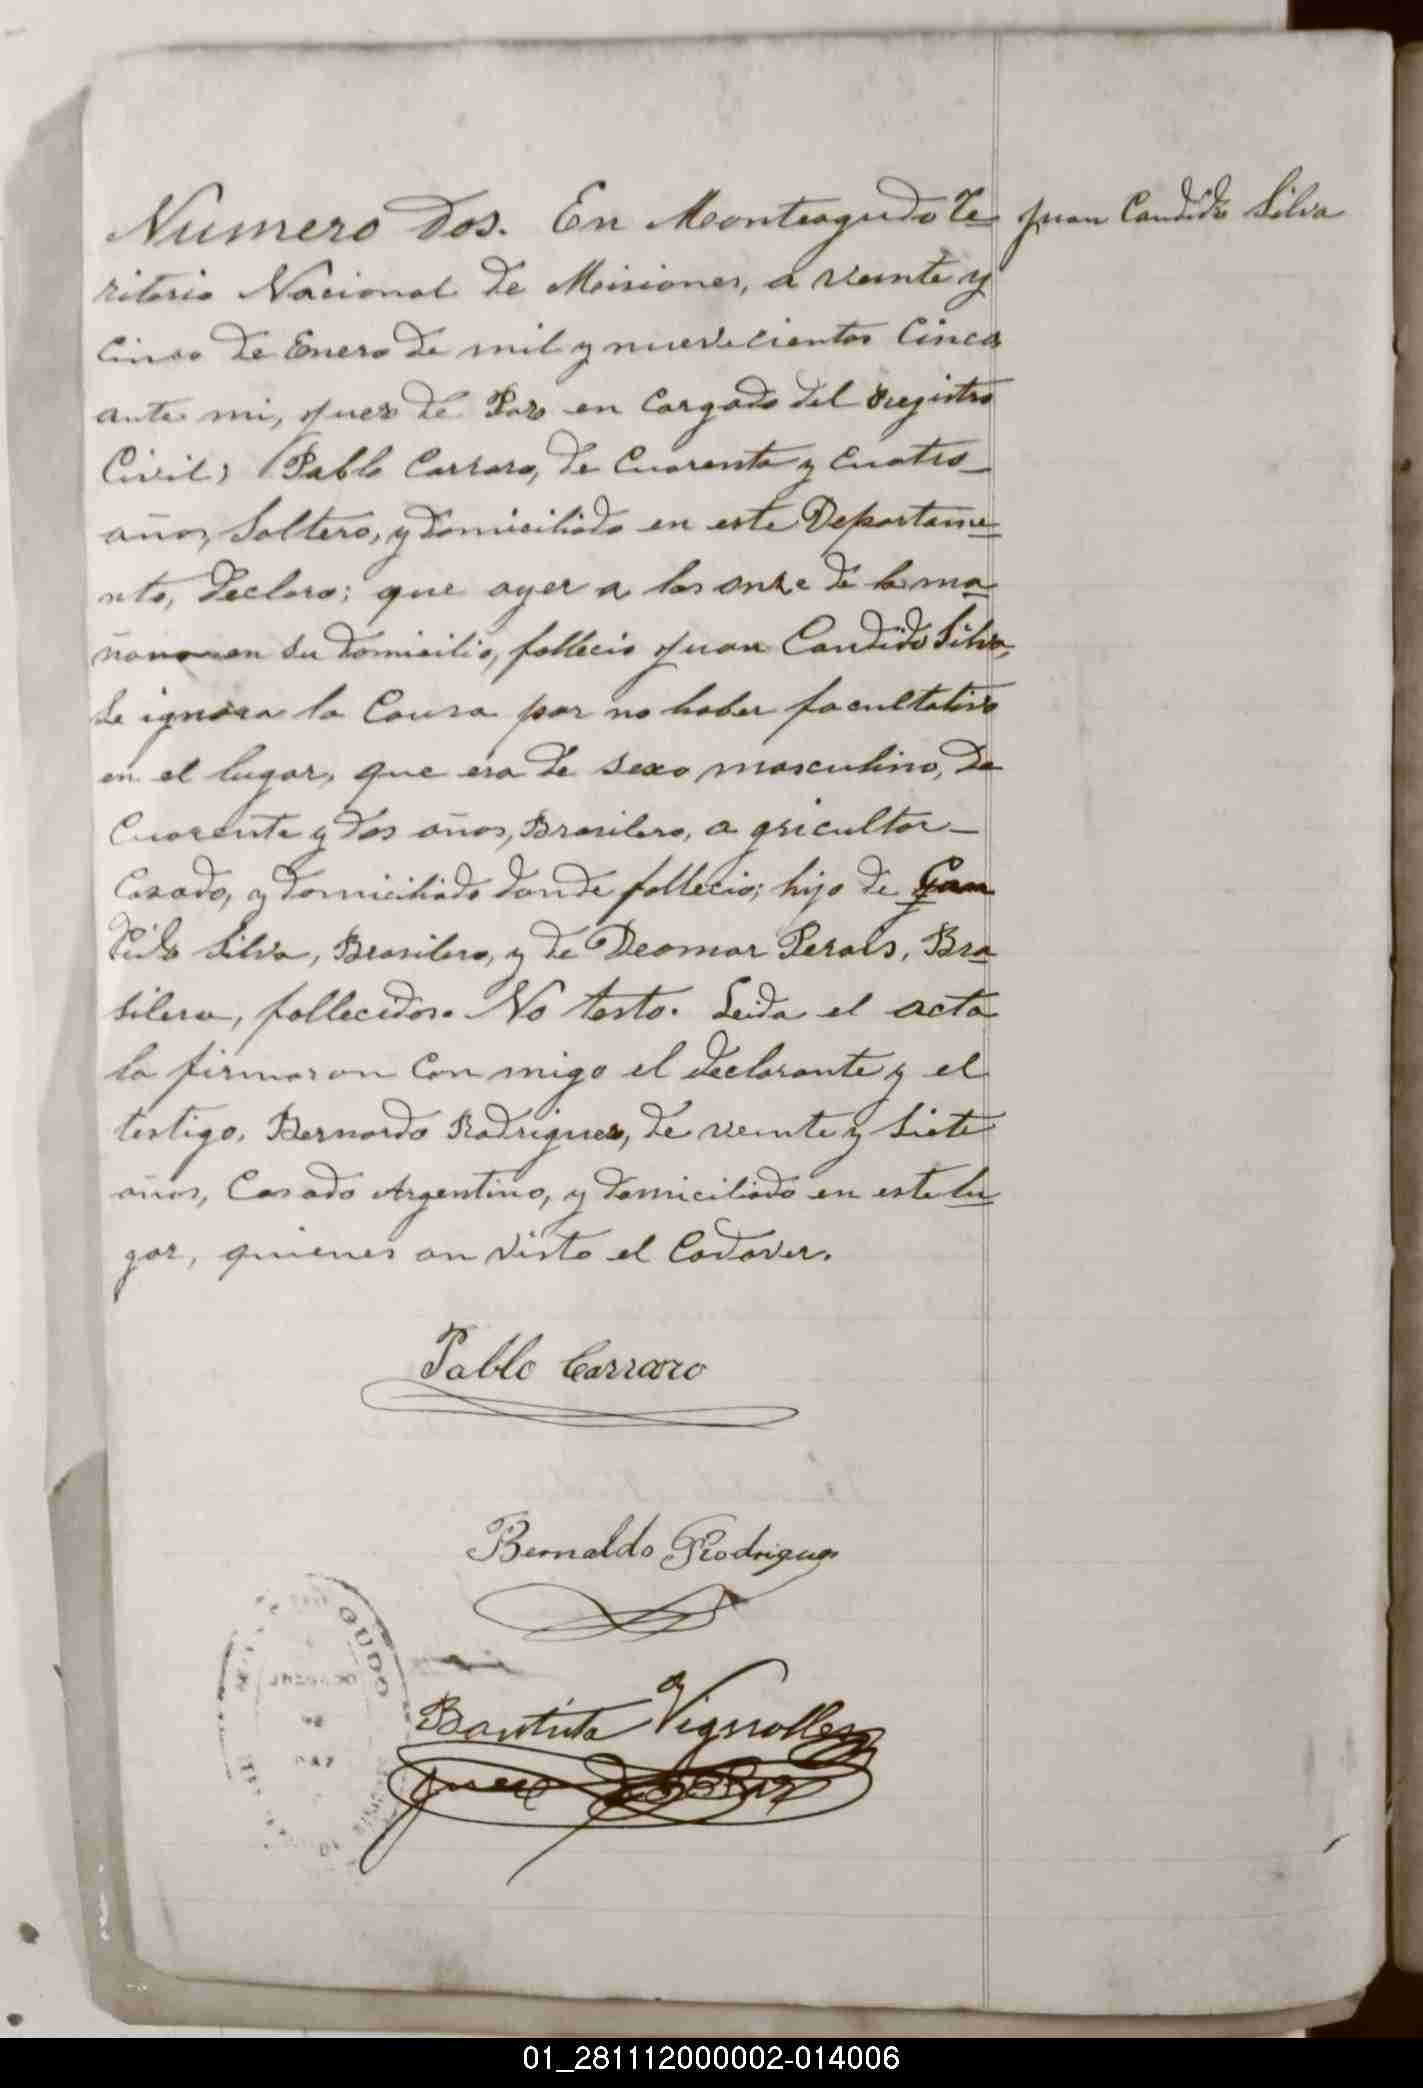 Numero Dos. En Monteagudo Te-
Juan Candido Silva
ritorio Nacional de Misiones, a veinte y
Cinco de Enero de mil y nuevecientos Cinco
ante mi, Juez de Paz en Cargado del Registro
Civil; Pablo Carraro, de Cuarenta y Cuatro
años, Soltero, y domiciliado en este Departame-
nto, declara; que ayer a las onze de la ma-
ñana en su domicilio, fallecio Juan Candido Silva,
se ignora la Causa por no haber facultativo
en el lugar, que era de sexo masculino, de
Cuarenta y dos años, Brasilero, agricultor
Casado, y domiciliado donde fallecio; hijo de Can
dido Silva, Brasilero, y de Deomar Perais, Bra-
silera, fallecidos. No testo. Leida el acta
la firmaron Con migo el declarante y el
testigo, Bernardo Rodriguez, de veinte y siete
años, Casado Argentino, y domiciliado en este lu-
gar, quienes an visto el Cadaver.
Pablo Carraro
Bernaldo Rodrigues
Bautista Vignolles
Juez de Paz
GUDO
01_281112000002-014006